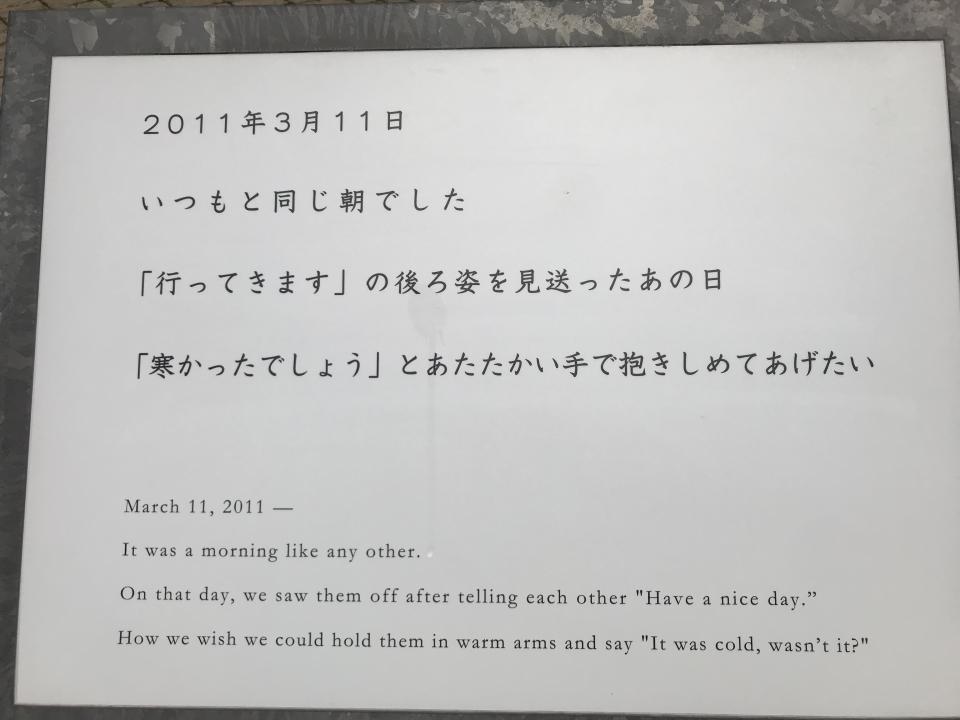 ２０１１年３月１１日
いつもと同じ朝でした
「行ってきます」の後ろ姿を見送ったあの日
「寒かったでしょう」とあたたかい手で抱きしめてあげたい
March 11, 2011 —
It was a morning like any other.
On that day, we saw them off after telling each other "Have a nice day.”
How we wish we could hold them in warm arms and say "It was cold, wasn’t it?"